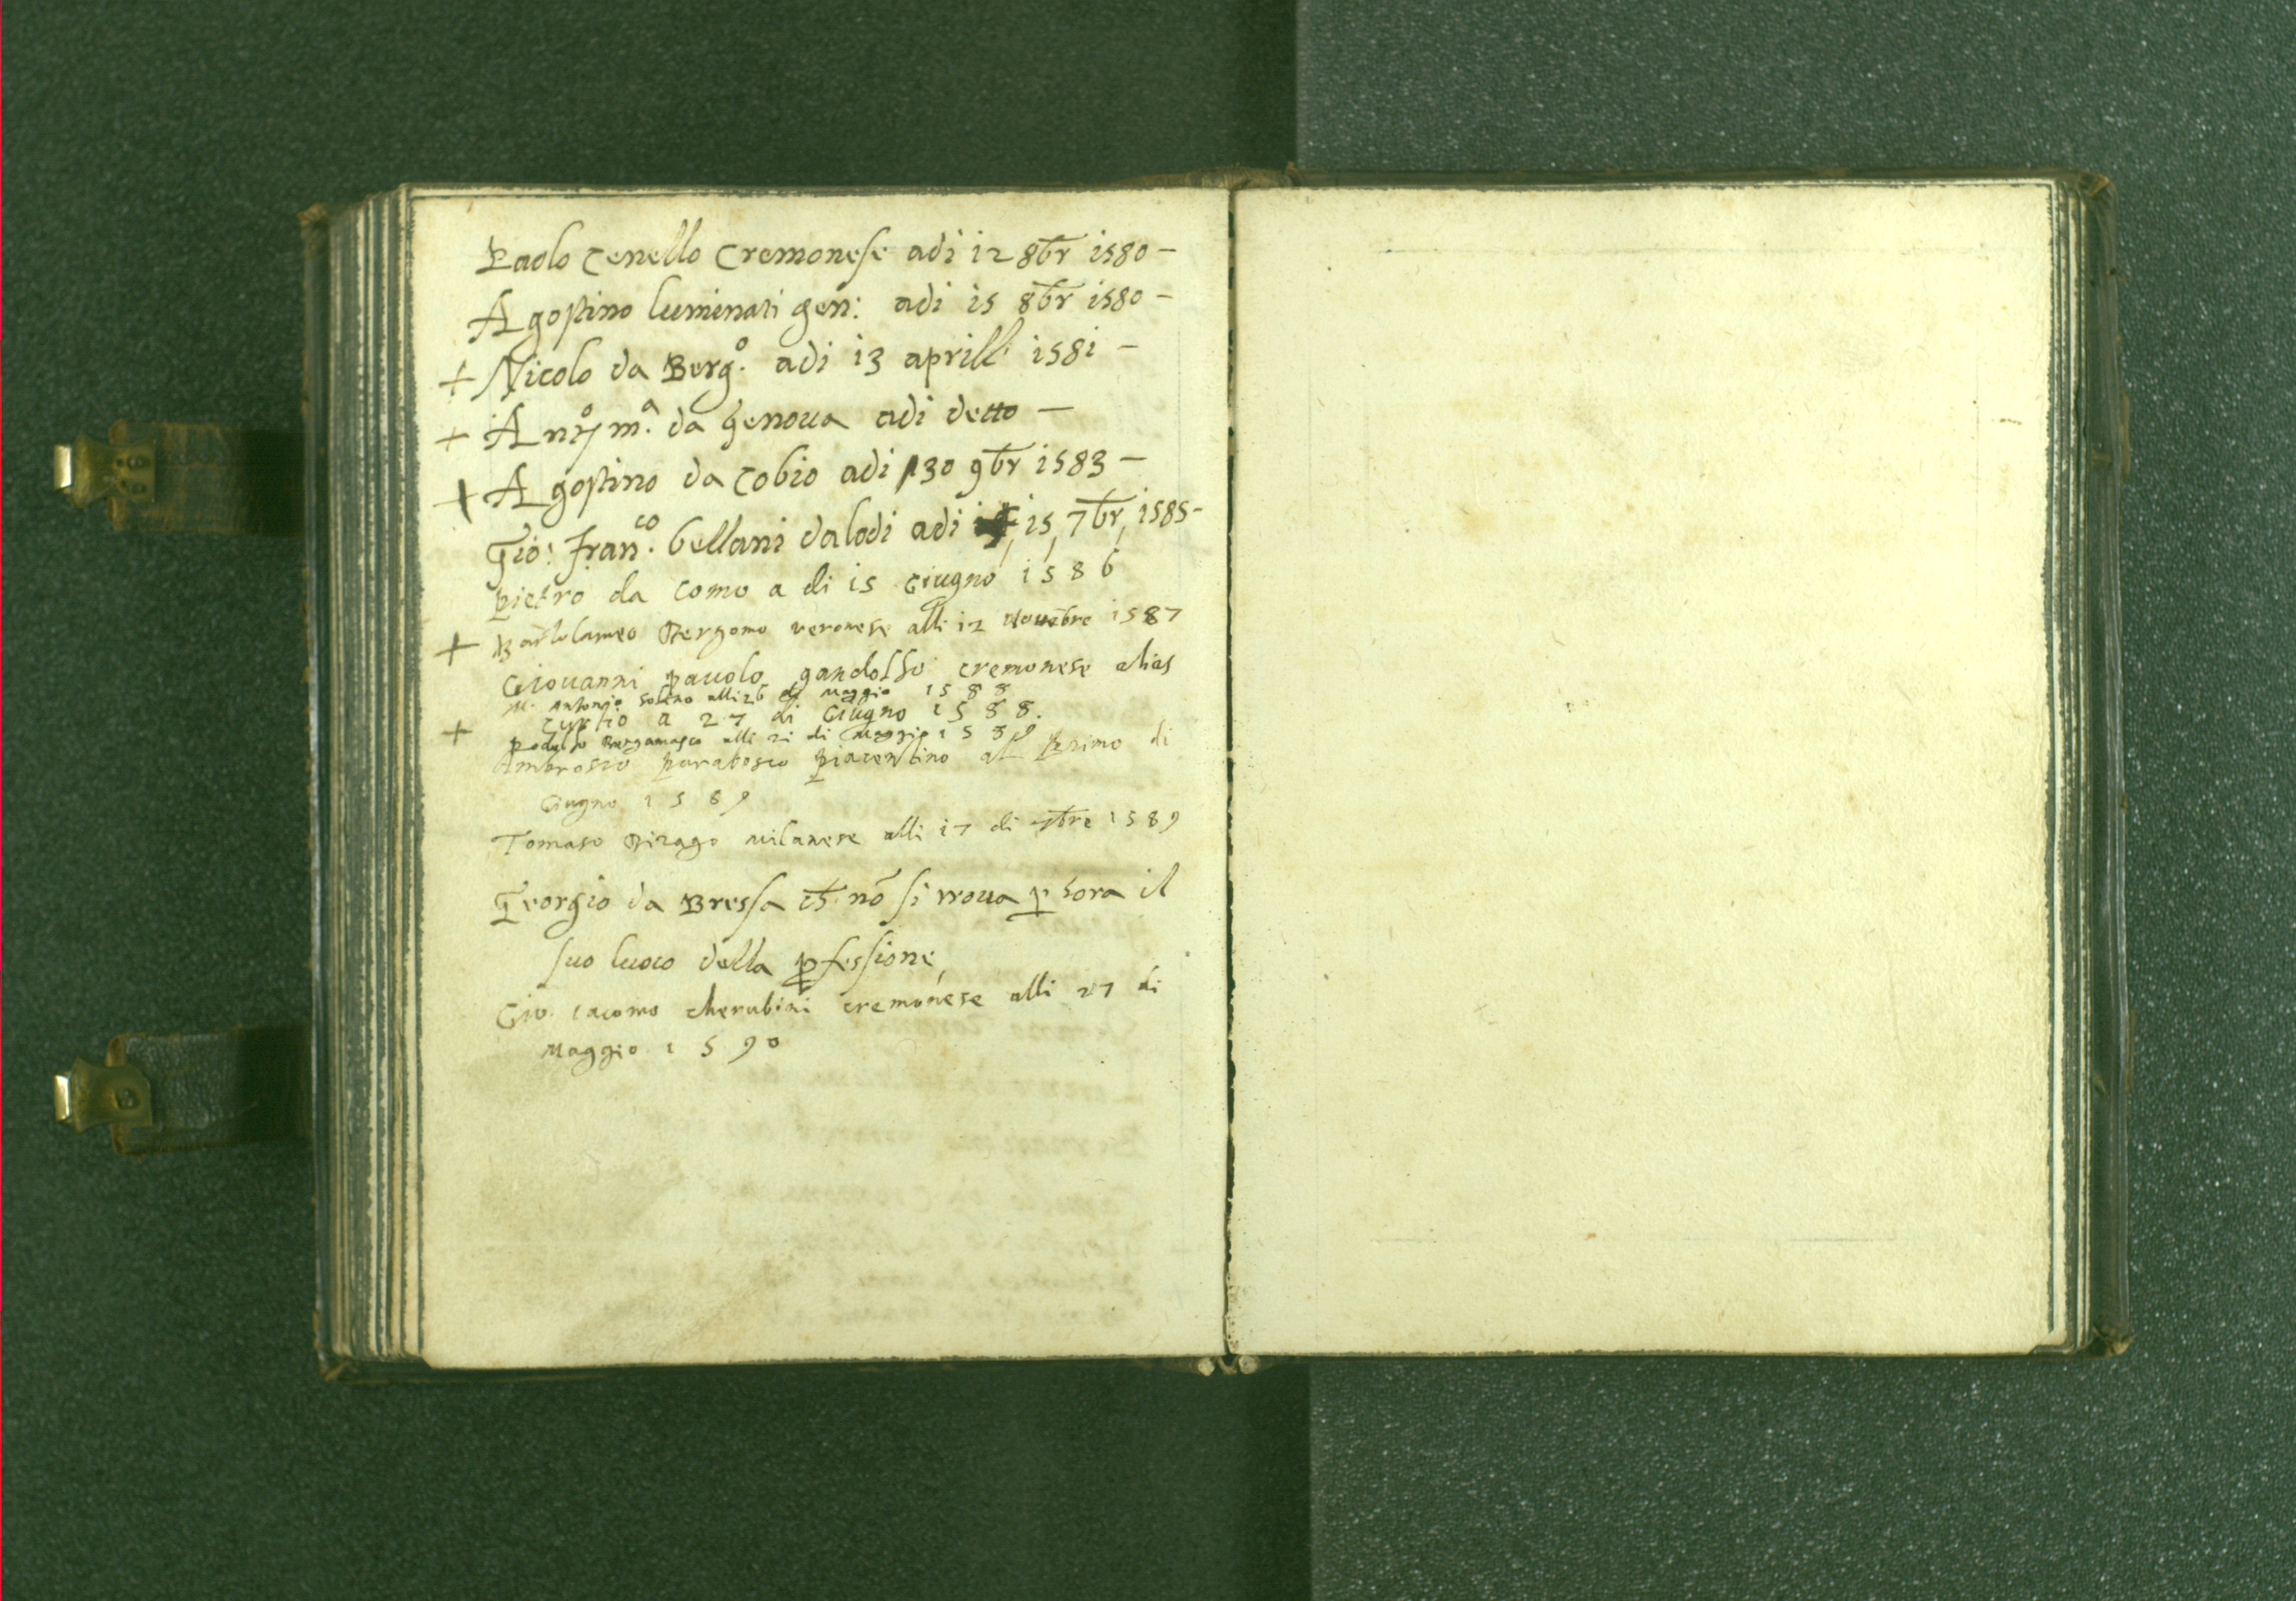 Paolo Zenello Cremonese adi 12 8br 1580 –
Agostino luminati gen: adi 15 8br 1580 –
+ Nicolo da Berg.º adi 13 aprill' 1581 –
+ Antº m.ª da Genoua adi detto –
+ Agostino da Cobio adi 30 9br 1583 –
Gio: Fran.co bellani da lodi adi 15, 7br, 1585 –
pietro da Como a di 15 Giugno 1586
+ Bartolameo Bergomo veronese alli 12 Nouēbre 1587
Giouanni pauolo gandolfo cremonese alias
M. Antonio Solino alli 26 di Maggio 1588
a 27 di Giugno 1588.
+ Rodolfo Bergamasco alli 21 di Maggio 1589
Ambrosio parabosco piacentino al Primo di
Giugno 1589
Tomaso Birago milanese alli 17 di 7bre 1589
Georgio da Bressa nō si troua p hora il
suo luoco della pfessione,
Gio. Iacomo cherubini cremonese alli 27 di
Maggio 1590